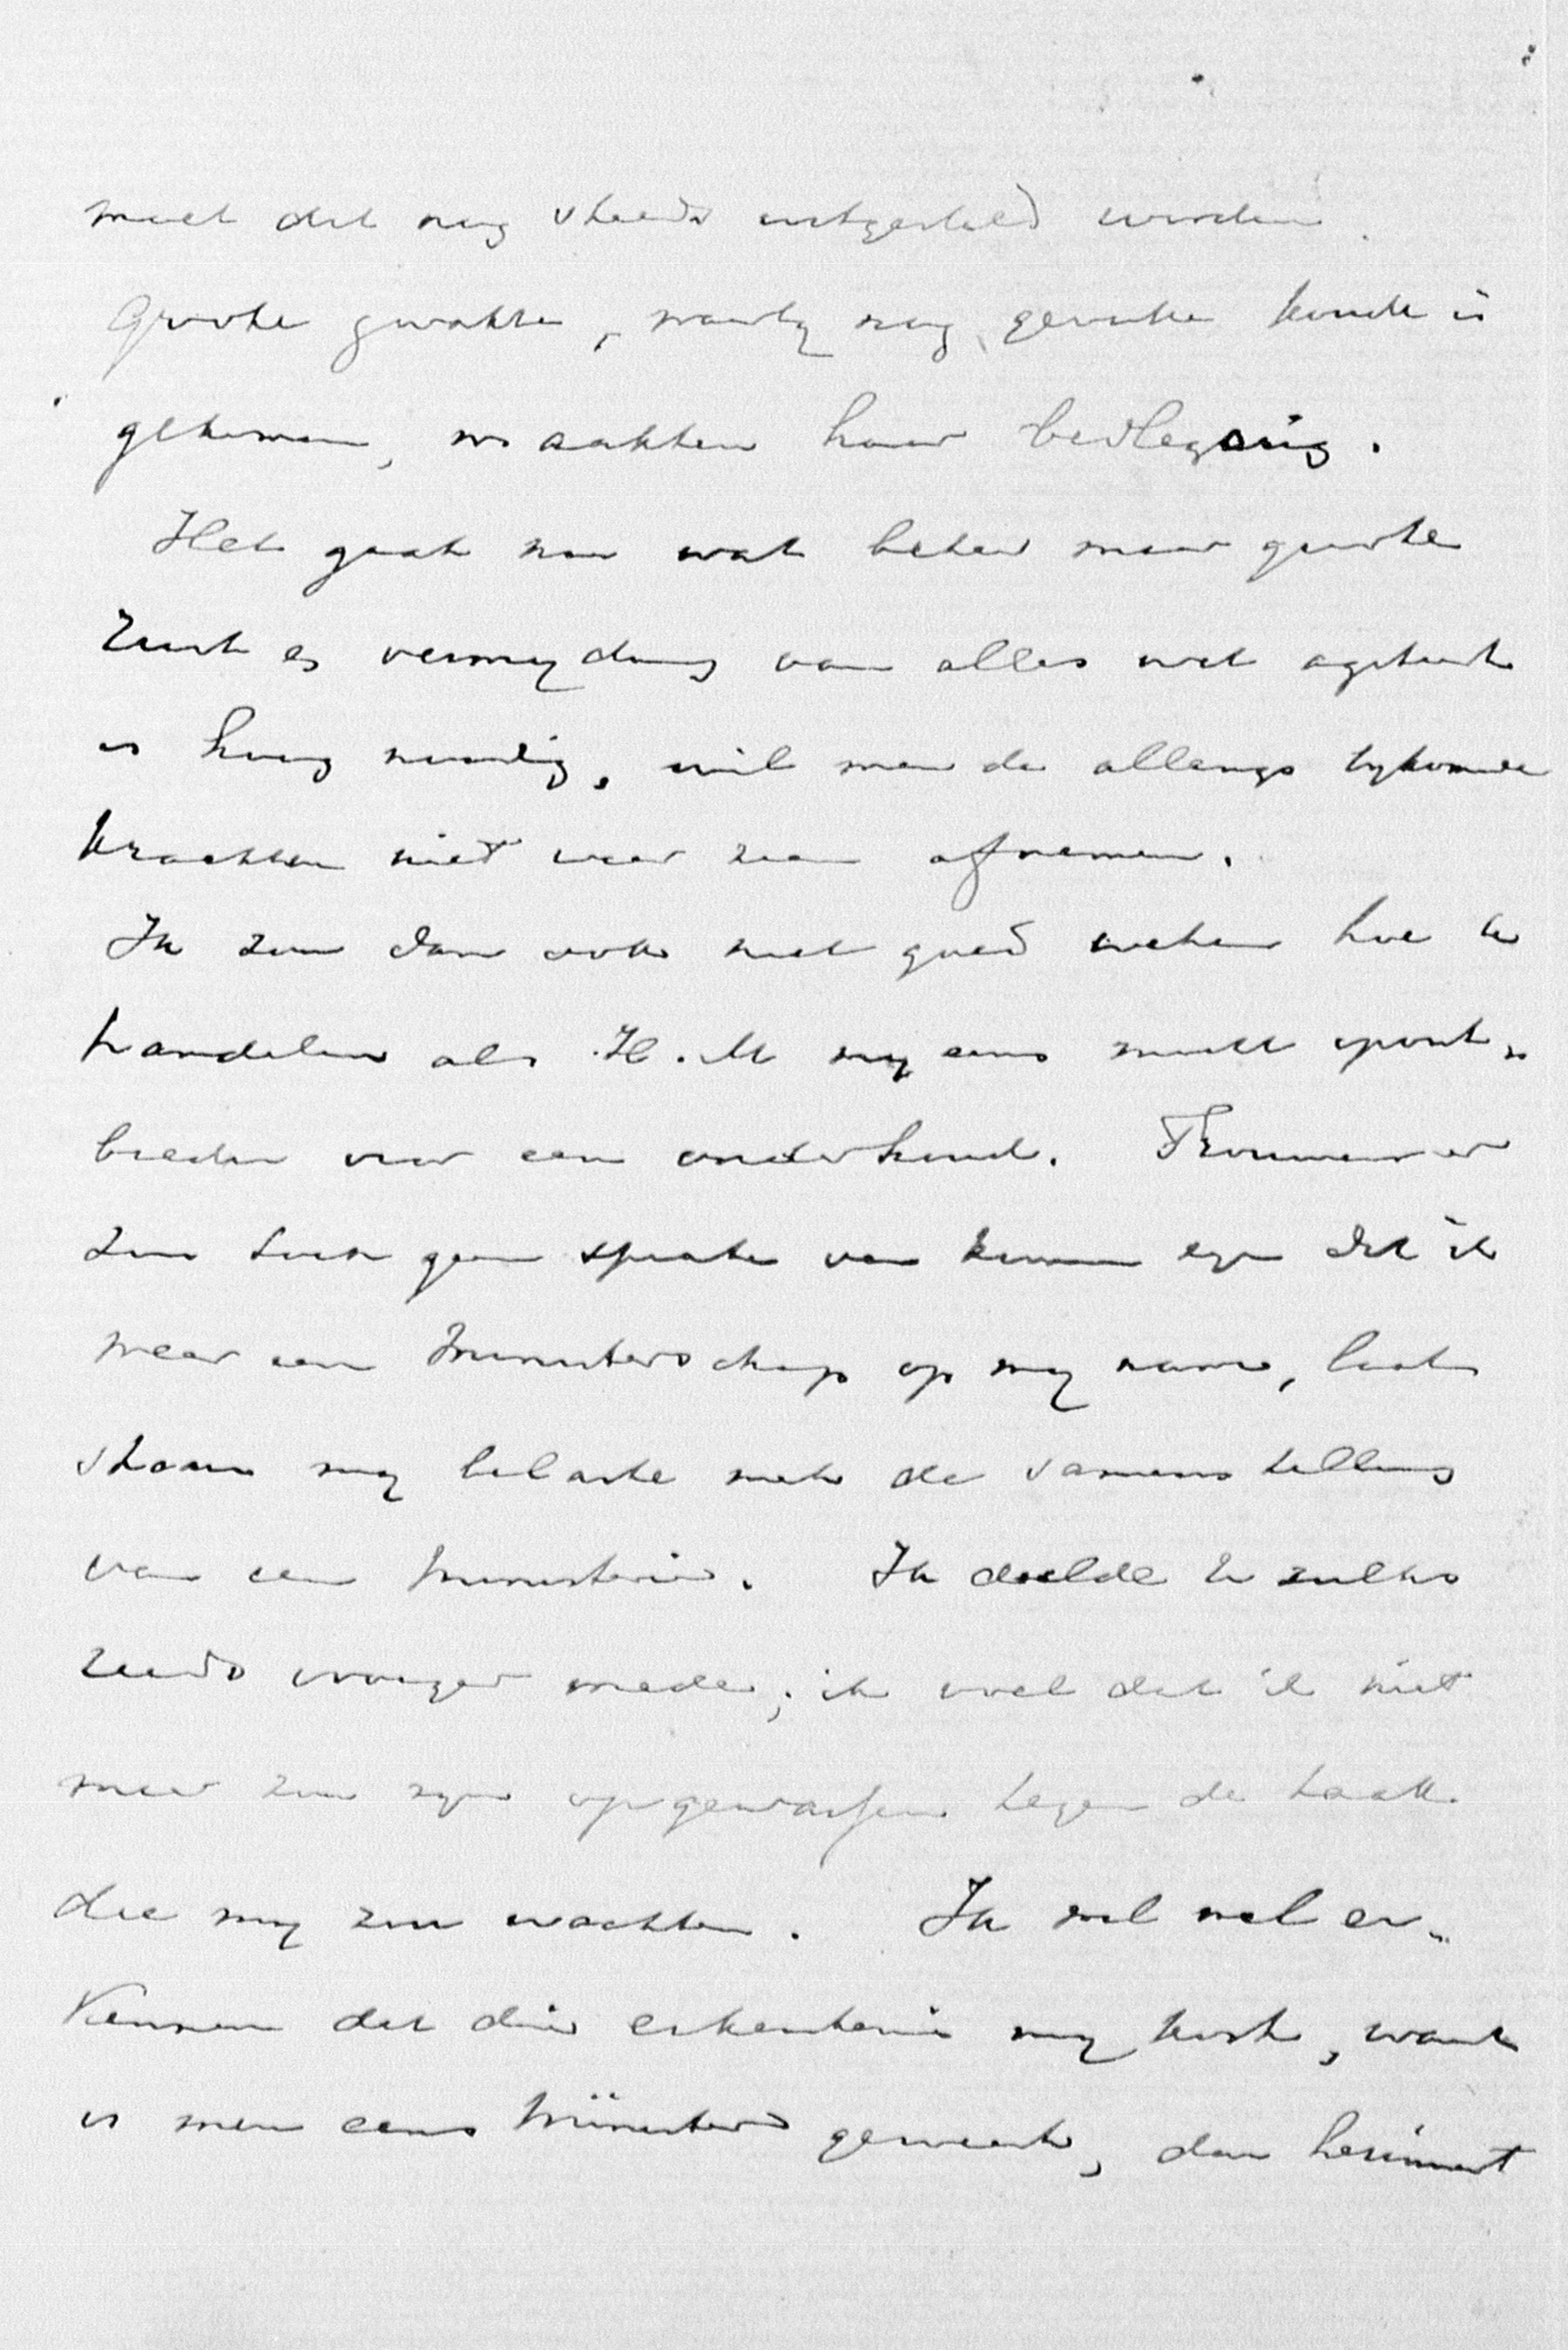 moet dat nog steeds uitgesteld worden.
Groote zwakte, waarby nog gevatte koude is
gekomen, maakten haar bedlegerig.
Het gaat nu wat beter maar groote
rust en vermyding van alles wat agiteert
is hoog noodig, wil men de allengs bykomende
krachten niet weer zien afnemen.
Ik zou dan ook niet goed weten hoe te
handelen als H.M my eens mocht opont-
bieden voor een onderhoud. Trouwens er
zou toch geen sprake van kunnen zyn dat ik
weer een Ministerschap op my nam, laat
staan my belaste met de samenstelling
van een Ministerie. Ik deelde U zulks
reeds vroeger mede; ik voel dat ik niet
meer zou zyn opgewassen tegen de taak
die my zou wachten. Ik wil wel er-
kennen dat die erkentenis my kost, want
is men eens Minister geweest, dan herinnert